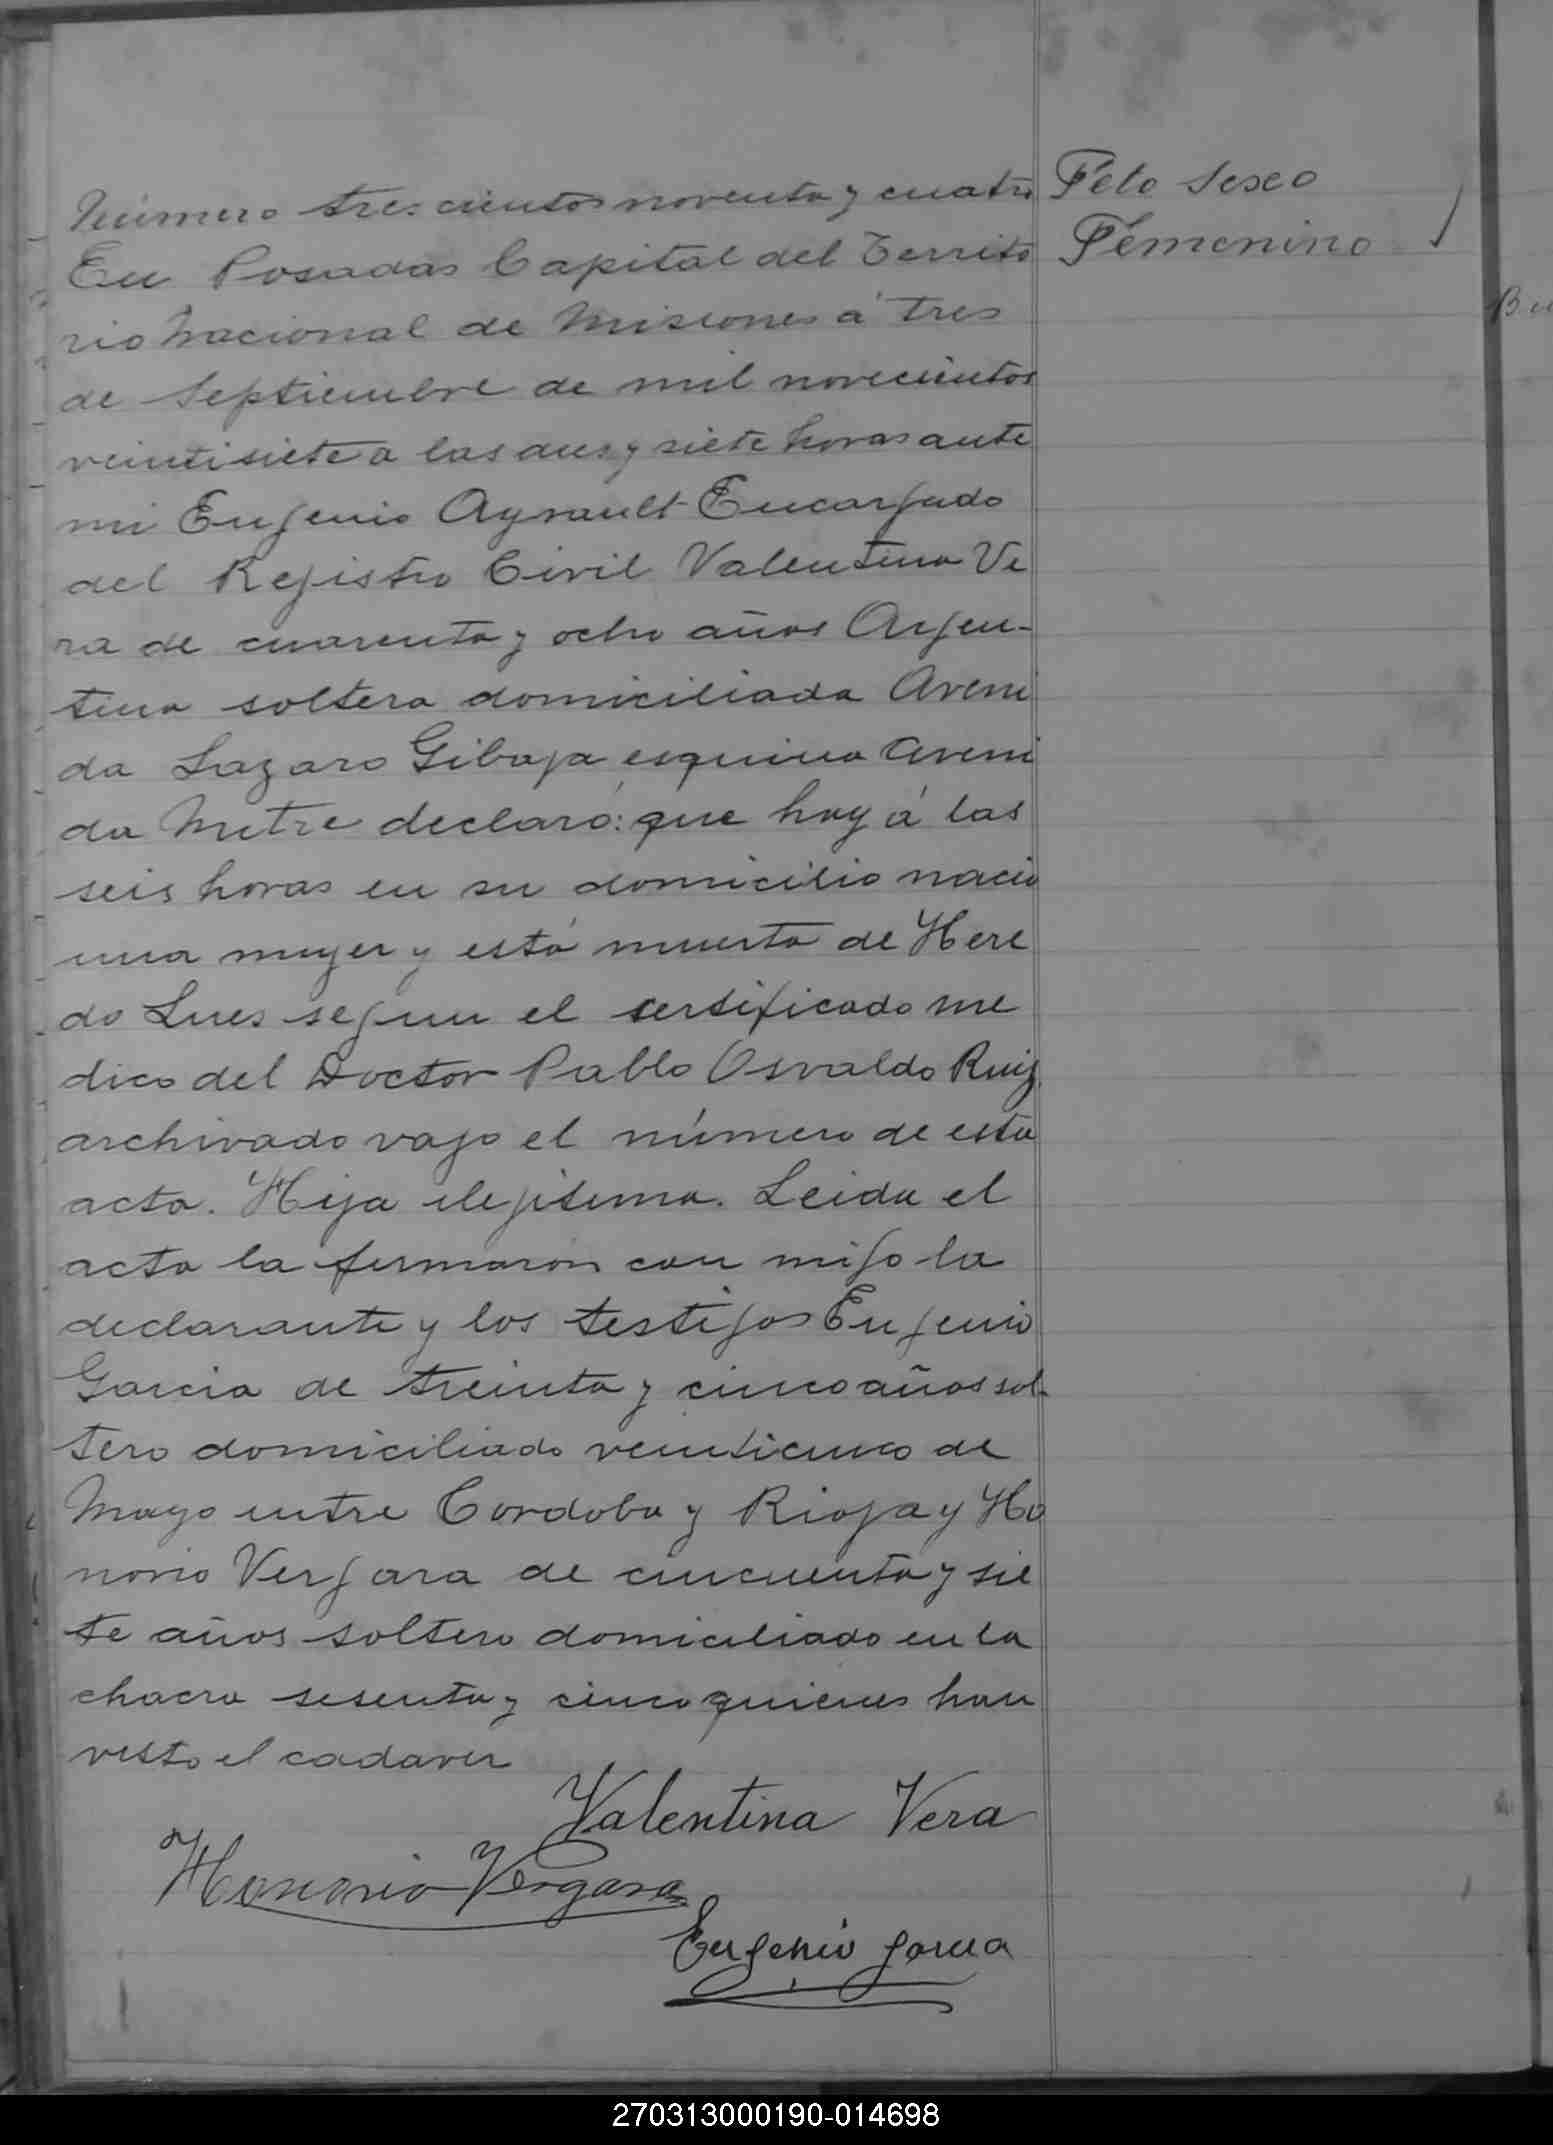 Número trescientos noventa y cuatro
En Posadas Capital del Territo
rio Nacional de Misiones á tres
de Septiembre de mil novecientos
veintisiete a las dies y siete horas ante
mi Eugenio Ayrault Encargado
del Registro Civil Valentina Ve
ra de cuarenta y ocho años Argen-
tina soltera domiciliada Aveni
da Lazaro Gibaja esquina Aveni
da Mitre declaró: que hoy á las
seis horas en su domicilio nació
una mujer y está muerta de Here
do Lues segun el certificado me
dico del Doctor Pablo Osvaldo Ruiz
archivado vajo el número de esta
acta. Hija ilegitima. Leida el
acta la firmaron con migo la
declarante y los testigos Eugenio
Garcia de treinta y cinco años sol-
tero domiciliado veinticinco de
Mayo entre Cordoba y Rioja y Ho
norio Vergara de cincuenta y sie
te años soltero domiciliado en la
chacra sesenta y cinco quienes han
visto el cadaver
Valentina Vera
Honorio Vergara
Eugenio garcia
Feto Sexo
Femenino
270313000190-014698